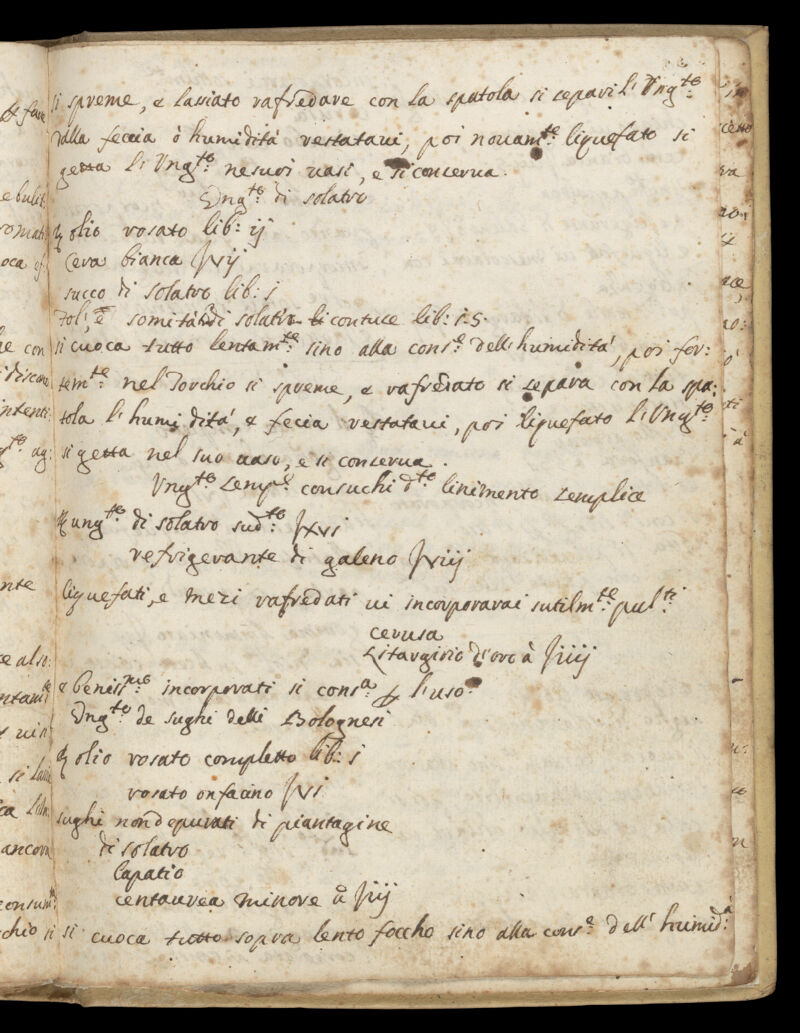 si spreme, & lassato rafredare con la spatola si separi l'Vng.to
dalla feccia ò humidità restatavi, poi novam.te liquefato si
getta l'Vng.to nesuoi uasi, e si conserua.
Vng.to di solatro
℞ olio rosato lib: ij
Cera bianca ℥vij
succo di solatro lib: j
fol: e somità di solatro contuce lib: j.s.
si cuoca tutto lentam.te sino alla cons.e dell'humidità, poi for:
tem.te nel Torchio si spreme, & rafredato si separa con la spa:
tola l'humidità, & fecia restataui, poi liquefato l'Vng.to
si getta nel suo uaso, e si conserua.
Vng.to semp.e consuchi d.to linimento semplice
℞ ung.to di solatro sud.to ℥xvi
refrigerante di galeno ℥viij
liquefati, e mezi rafredati ui incorporarai sutilm.te pul.ti
cerusa
Litargirio d'oro à ℥iiij
& beniss.mo incorporati si cons.a p l'uso
Vng.to de sughi delli Bolognesi
℞ olio rosato completto lib: j
rosato onfacino ℥vi
sughi non depurati di piantagine
di solatro
lapatio
centaurea minore à ℥iij
si cuoca tutto sopra lento foccho sino alla cons.e dell'humid.à